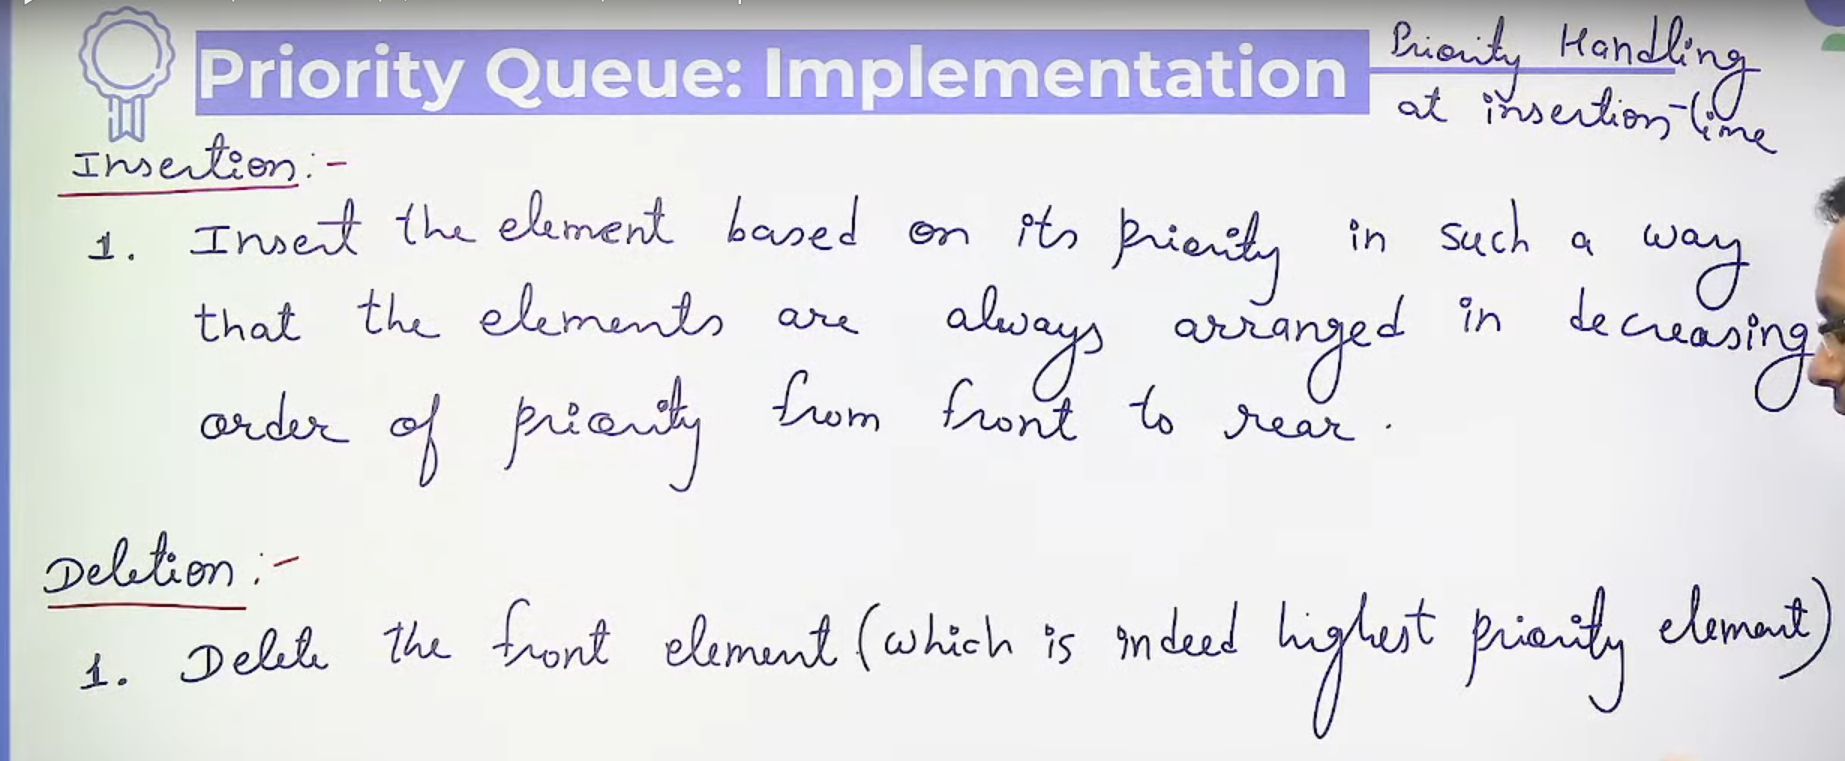 Priority Queue: Implementation
Priority Handling
at insertion-time
Insertion:-
1. Insert the element based on its priority in such a way
that the elements are always arranged in decreasing
order of priority from front to rear.
Deletion:-
1. Delete the front element (which is indeed highest priority element)